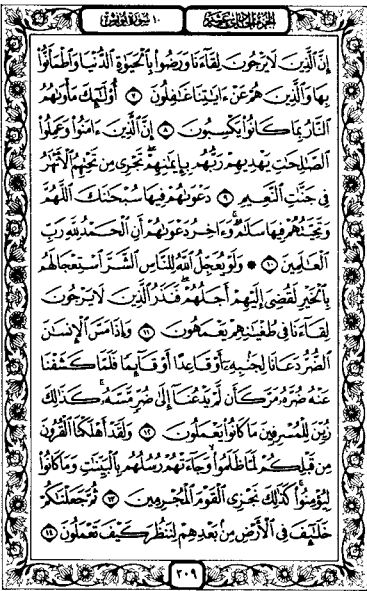 الجزء الحادي عشر ١٠ سورة يونس
إِنَّ ٱلَّذِينَ لَا يَرْجُونَ لِقَآءَنَا وَرَضُوا۟ بِٱلْحَيَوٰةِ ٱلدُّنْيَا وَٱطْمَأَنُّوا۟
بِهَا وَٱلَّذِينَ هُمْ عَنْ ءَايَٰتِنَا غَٰفِلُونَ ٧ أُو۟لَٰٓئِكَ مَأْوَىٰهُمُ
ٱلنَّارُ بِمَا كَانُوا۟ يَكْسِبُونَ ٨ إِنَّ ٱلَّذِينَ ءَامَنُوا۟ وَعَمِلُوا۟
ٱلصَّٰلِحَٰتِ يَهْدِيهِمْ رَبُّهُم بِإِيمَٰنِهِمْ تَجْرِى مِن تَحْتِهِمُ ٱلْأَنْهَٰرُ
فِى جَنَّٰتِ ٱلنَّعِيمِ ٩ دَعْوَىٰهُمْ فِيهَا سُبْحَٰنَكَ ٱللَّهُمَّ
وَتَحِيَّتُهُمْ فِيهَا سَلَٰمٌ وَءَاخِرُ دَعْوَىٰهُمْ أَنِ ٱلْحَمْدُ لِلَّهِ رَبِّ
ٱلْعَٰلَمِينَ ١٠ ۞ وَلَوْ يُعَجِّلُ ٱللَّهُ لِلنَّاسِ ٱلشَّرَّ ٱسْتِعْجَالَهُم
بِٱلْخَيْرِ لَقُضِىَ إِلَيْهِمْ أَجَلُهُمْ فَنَذَرُ ٱلَّذِينَ لَا يَرْجُونَ
لِقَآءَنَا فِى طُغْيَٰنِهِمْ يَعْمَهُونَ ١١ وَإِذَا مَسَّ ٱلْإِنسَٰنَ
ٱلضُّرُّ دَعَانَا لِجَنۢبِهِۦٓ أَوْ قَاعِدًا أَوْ قَآئِمًا فَلَمَّا كَشَفْنَا
عَنْهُ ضُرَّهُۥ مَرَّ كَأَن لَّمْ يَدْعُنَآ إِلَىٰ ضُرٍّ مَّسَّهُۥ كَذَٰلِكَ
زُيِّنَ لِلْمُسْرِفِينَ مَا كَانُوا۟ يَعْمَلُونَ ١٢ وَلَقَدْ أَهْلَكْنَا ٱلْقُرُونَ
مِن قَبْلِكُمْ لَمَّا ظَلَمُوا۟ وَجَآءَتْهُمْ رُسُلُهُم بِٱلْبَيِّنَٰتِ وَمَا كَانُوا۟
لِيُؤْمِنُوا۟ كَذَٰلِكَ نَجْزِى ٱلْقَوْمَ ٱلْمُجْرِمِينَ ١٣ ثُمَّ جَعَلْنَٰكُمْ
خَلَٰٓئِفَ فِى ٱلْأَرْضِ مِنۢ بَعْدِهِمْ لِنَنظُرَ كَيْفَ تَعْمَلُونَ ١٤
٢٠٩